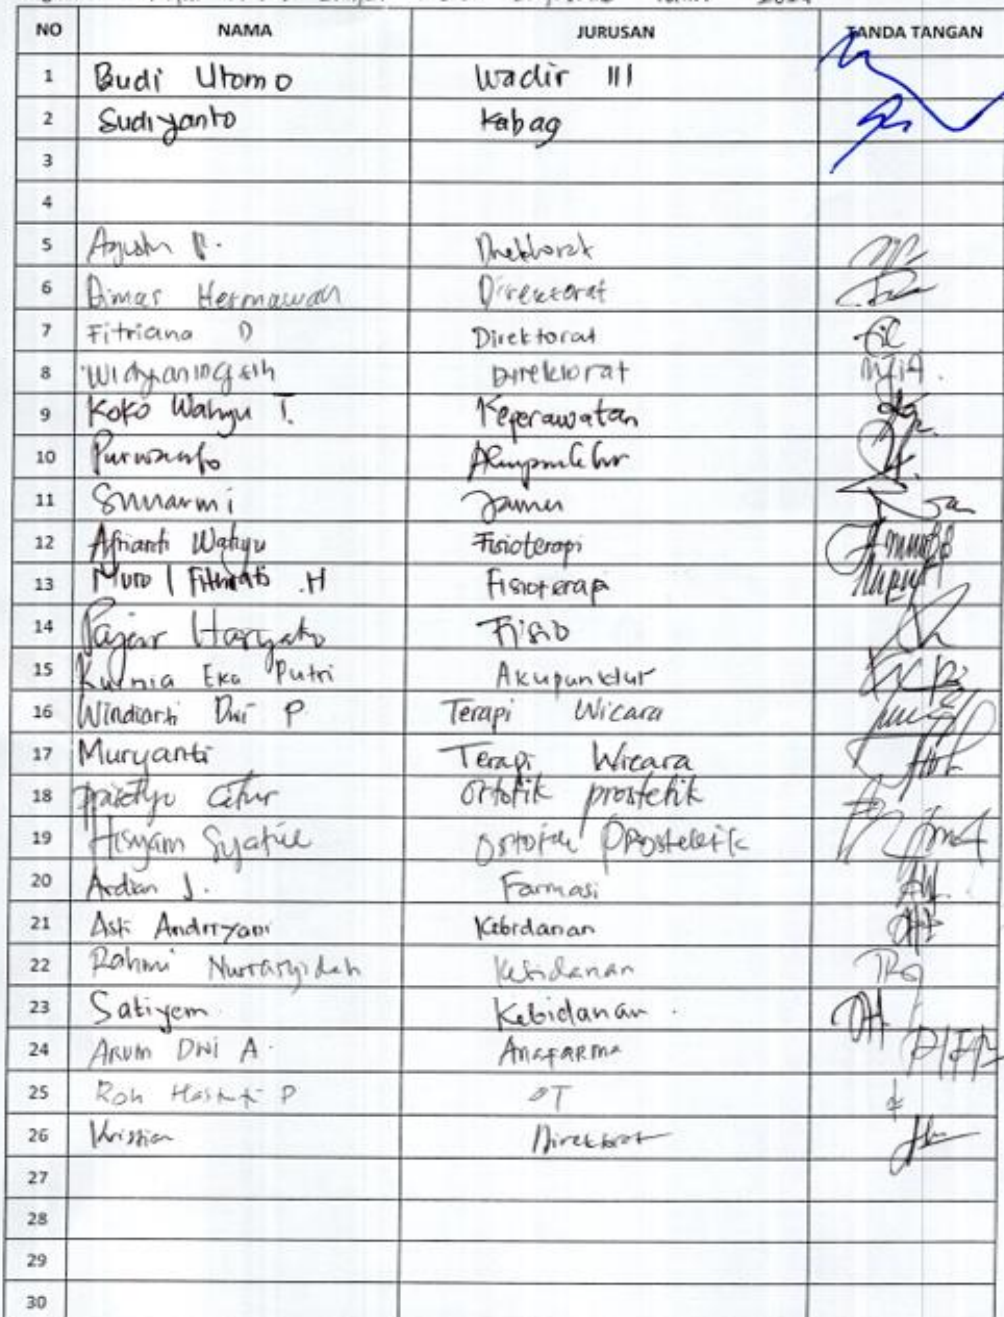 NO NAMA JURUSAN TANDA TANGAN
1 Budi Utomo Wadir III
2 Sudiyanto Kabag
3
4
5 Direktorat
6 Dimas Hermawan Direktorat
7 Fitriana D Direktorat
8 Widyaningsih Direktorat
9 Koko Wahyu T. Keperawatan
10 Purwanto Akupunktur
11 Sunarmi Jamu
12 Afrianti Wahyu Fisioterapi
13 H Fisioterapi
14 Fajar Haryato Fisio
15 Kurnia Eka Putri Akupunktur
16 Windiarti Dwi P Terapi Wicara
17 Muryanti Terapi Wicara
18 Prasetyo Catur Ortotik prostetik
19 Hisyam
20 Ardian J. Farmasi
21 Asti Andriyani Kebidanan
22 Rahmi Kebidanan
23 Satiyem Kebidanan
24 ARUM DWI A. ANAFARMA
25 P OT
26 Direktorat
27
28
29
30